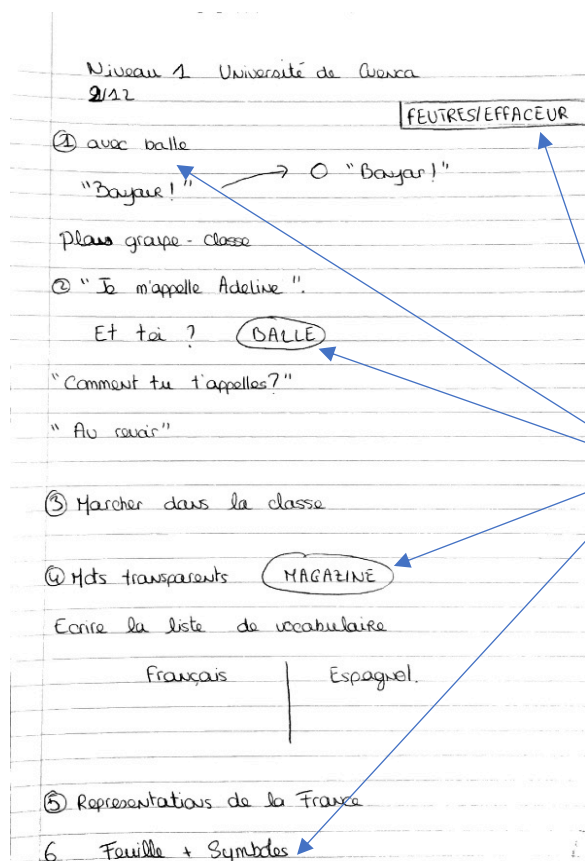 Niveau 1 Université de Cuenca
2/12
FEUTRES/EFFACEUR
① avec balle
"Bonjour!" → O "Bonjour!"
Plaus groupe - classe
② "Je m'appelle Adeline".
Et toi ? BALLE
"Comment tu t'appelles?"
"Au revoir"
③ Marcher dans la classe
④ Mots transparents MAGAZINE
Ecrire la liste de vocabulaire
Français Espagnol.
⑤ Representations de la France
6 Feuille + Symboles